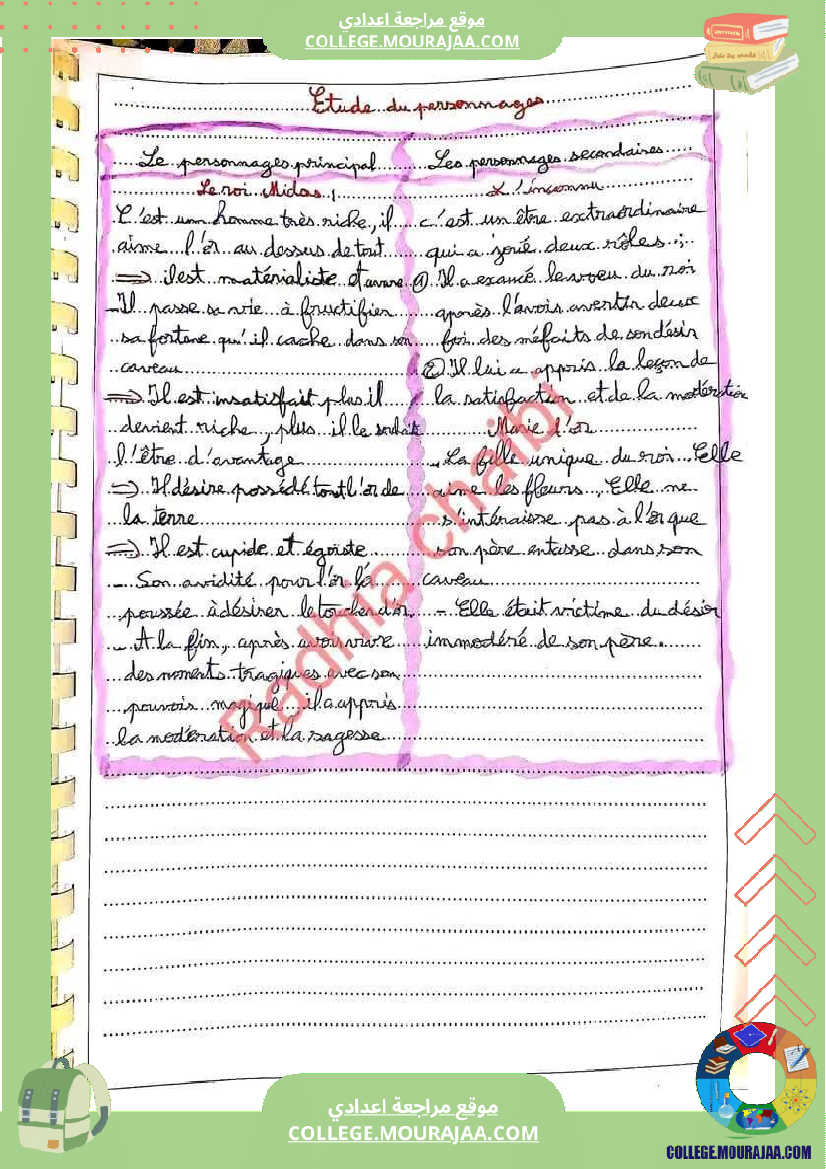 موقع مراجعة اعدادي
COLLEGE.MOURAJAA.COM
Etude du personnages
Le personnages principal
Le roi Midas
C'est un homme très riche, il
aime l'or au dessus de tout
⇒ il est matérialiste et avare
- Il passe sa vie à fructifier
sa fortune qu'il cache dans son
caveau
⇒ Il est insatisfait plus il
devient riche, plus il le souhaite
l'être d'avantage
⇒ Il désire possédé tout l'or de
la terre
⇒ Il est cupide et égoiste
- Son avidité pour l'or l'a
poussée à désirer le toucher d'or
- A la fin, après avoir vivre
des moments tragiques avec son
pouvoir magique, il a appris
la modération et la sagesse
Les personnages secondaires
L'inconnu
c'est un être extraordinaire
qui a joué deux rôles :
① Il a examé le voeu du roi
après l'avoir avertir deux
fois des méfaits de son désir
② Il lui a appris la leçon de
la satisfaction et de la modération
Marie d'or
- La fille unique du roi. Elle
aime les fleurs, Elle ne
s'intéraisse pas à l'or que
son père entasse dans son
caveau
- Elle était victime du désir
immodéré de son père.
Radhia chaibi
موقع مراجعة اعدادي
COLLEGE.MOURAJAA.COM
COLLEGE.MOURAJAA.COM